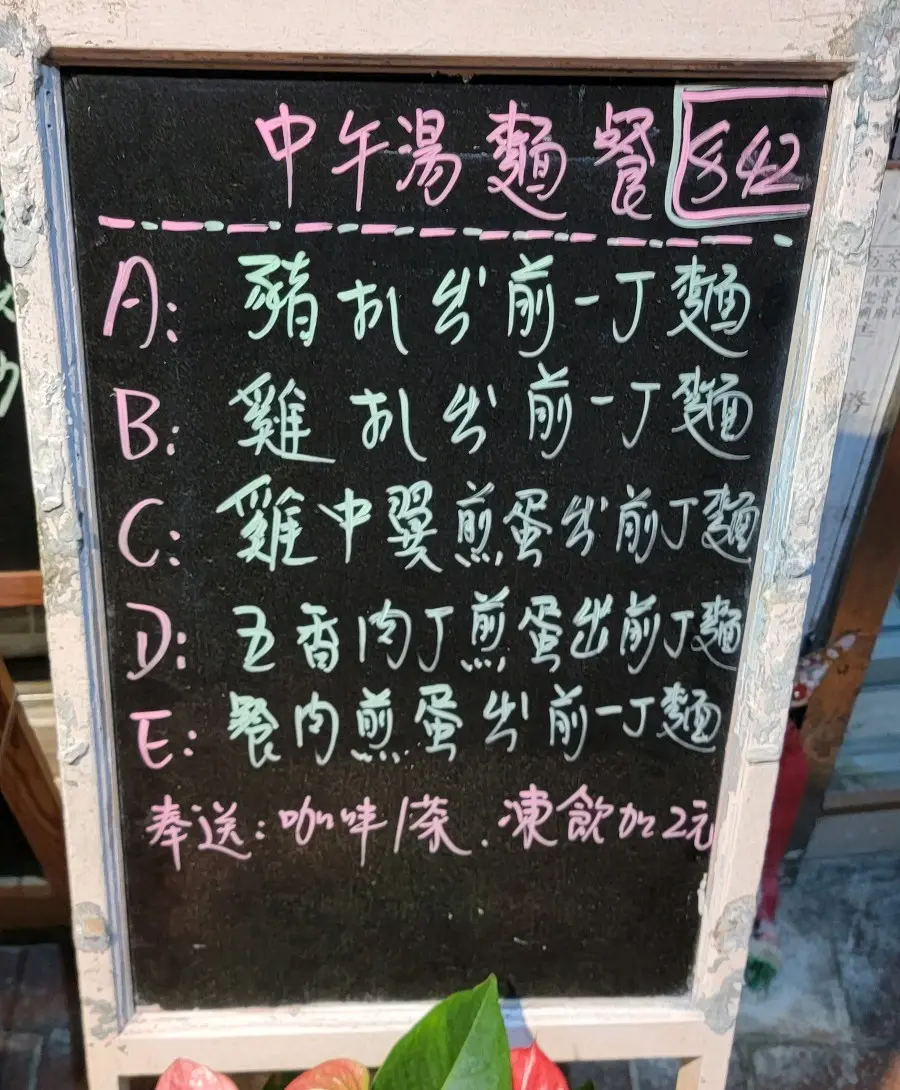 中午湯麵餐 $42
A: 豬扒出前一丁麵
B: 雞扒出前一丁麵
C: 雞中翼煎蛋出前丁麵
D: 五香肉丁煎蛋出前丁麵
E: 餐肉煎蛋出前一丁麵
奉送: 咖啡/茶. 凍飲加2元